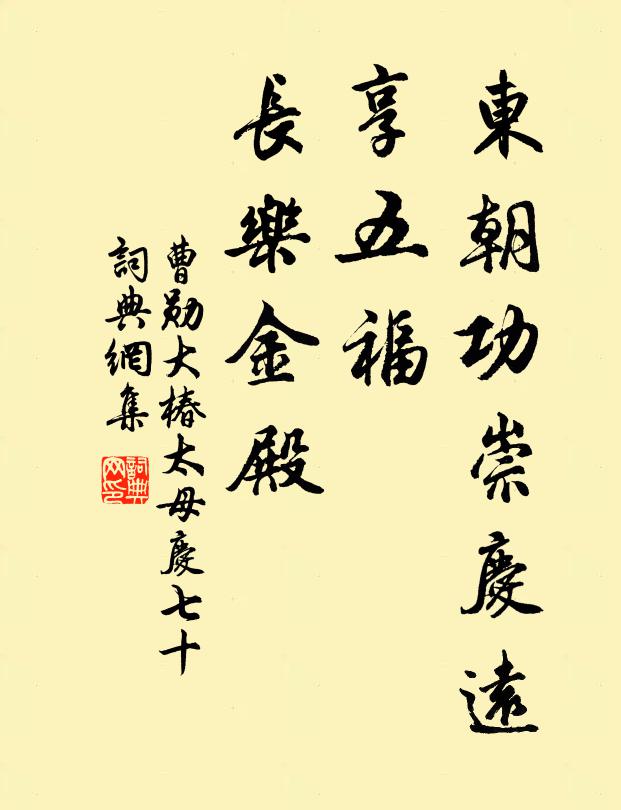 東朝功崇慶遠
享五福
長樂金殿
曹勛大椿太母慶七十
詞典網集
詞典網印